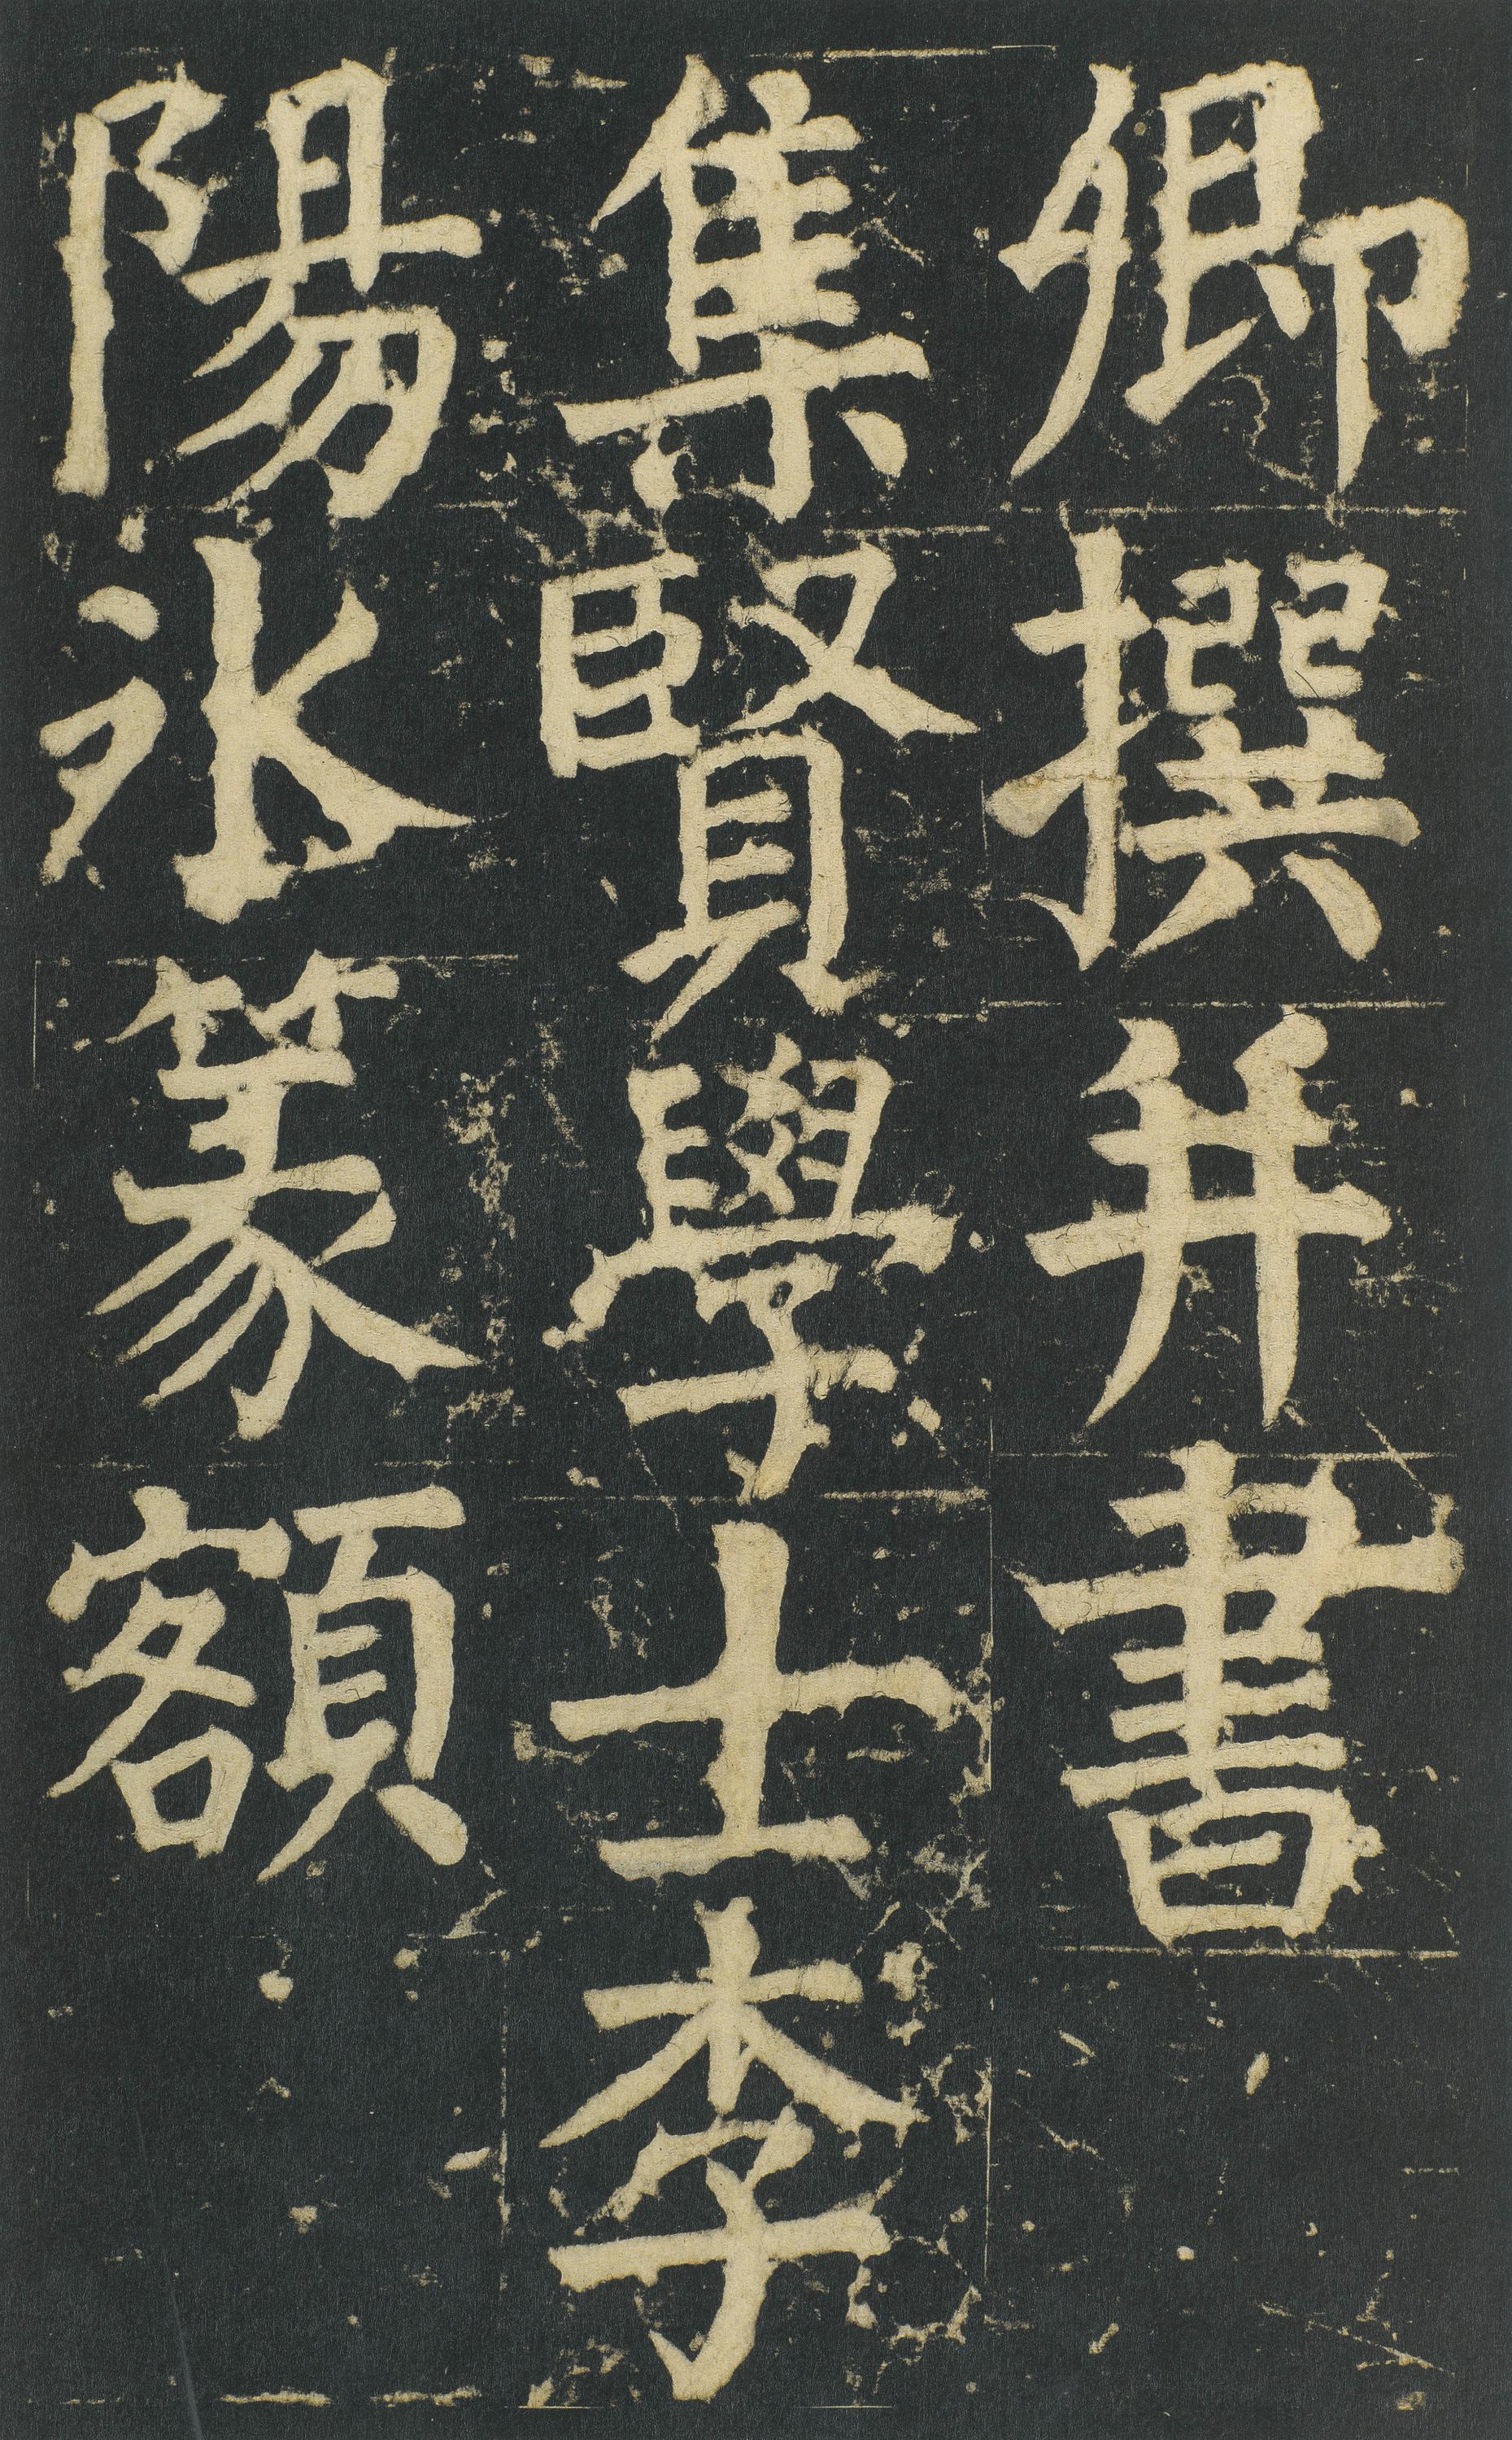 卿撰并書
集賢學士李
陽氷篆額